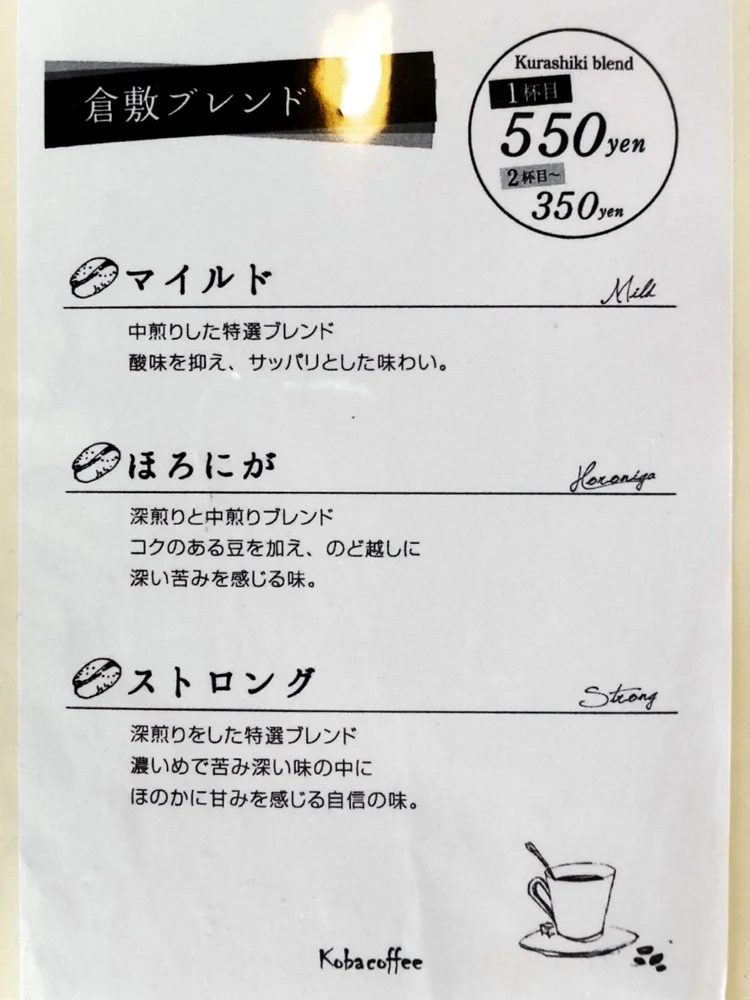 倉敷ブレンド
Kurashiki blend
1杯目
550yen
2杯目～
350yen
マイルド
Mild
中煎りした特選ブレンド
酸味を抑え、サッパリとした味わい。
ほろにが
Horoniga
深煎りと中煎りブレンド
コクのある豆を加え、のど越しに
深い苦みを感じる味。
ストロング
Strong
深煎りをした特選ブレンド
濃いめで苦み深い味の中に
ほのかに甘みを感じる自信の味。
Kobacoffee